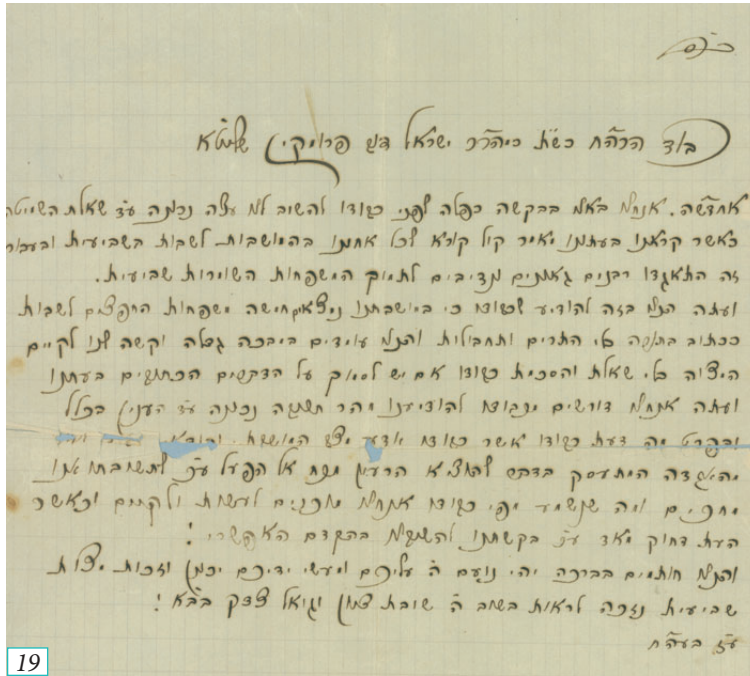 בע"ה
כבוד הרה"ח כש"ת כמוהר"ר ישראל דוב פרומקין שליט"א
אחדשה. אנחנו באנו בבקשה כפולה לפני כבודו להשיב לנו עצה נכונה ע"ד שאלת השמיטה
כאשר קראנו בעתונו מאמר קול קורא לכל אחינו בהמושבות לשבות בשביעית ובעבור
זה התאגדו רבנים גאונים ונדיבים לתמוך המשפחות השומרות שביעית.
ועתה הננו בזה להודיע לכבודו כי במושבתנו נמצאים חמישה משפחות החפצים לשבות
ככתוב בתורה בלי התרים ותחבולות והננו עומדים במבכה גדולה וקשה לנו לקיים
המצוה בלי שאלת והסכמת כבודו אם יש לסמוך על הדברים הכתובים בעתונו
ועתה אנחנו דורשים מכבודו להודיענו מהר תשובה נכונה ע"ד הענין בכלל
ובפרט מה דעת כבודו אשר כבודו יודע מצב המושבה
מהאגודה המתעסק בדבר להוציא הרעיון מכח אל הפעל ע"כ לתשובתו אנו
מחכים ומה שנשמע מפי כבודו אנחנו מוכנים לעשות ולקיים וכאשר
העת דחוק מאד ע"כ בקשתנו להשיבנו בהקדם האפשרי!
והננו חותמים בברכה יהי נועם ה' עליכם ומעשי ידיכם יכונן וזכות מצות
שביעית נזכה לראות בשוב ה' שיבת ציון וגואל צדק בב"א!
19